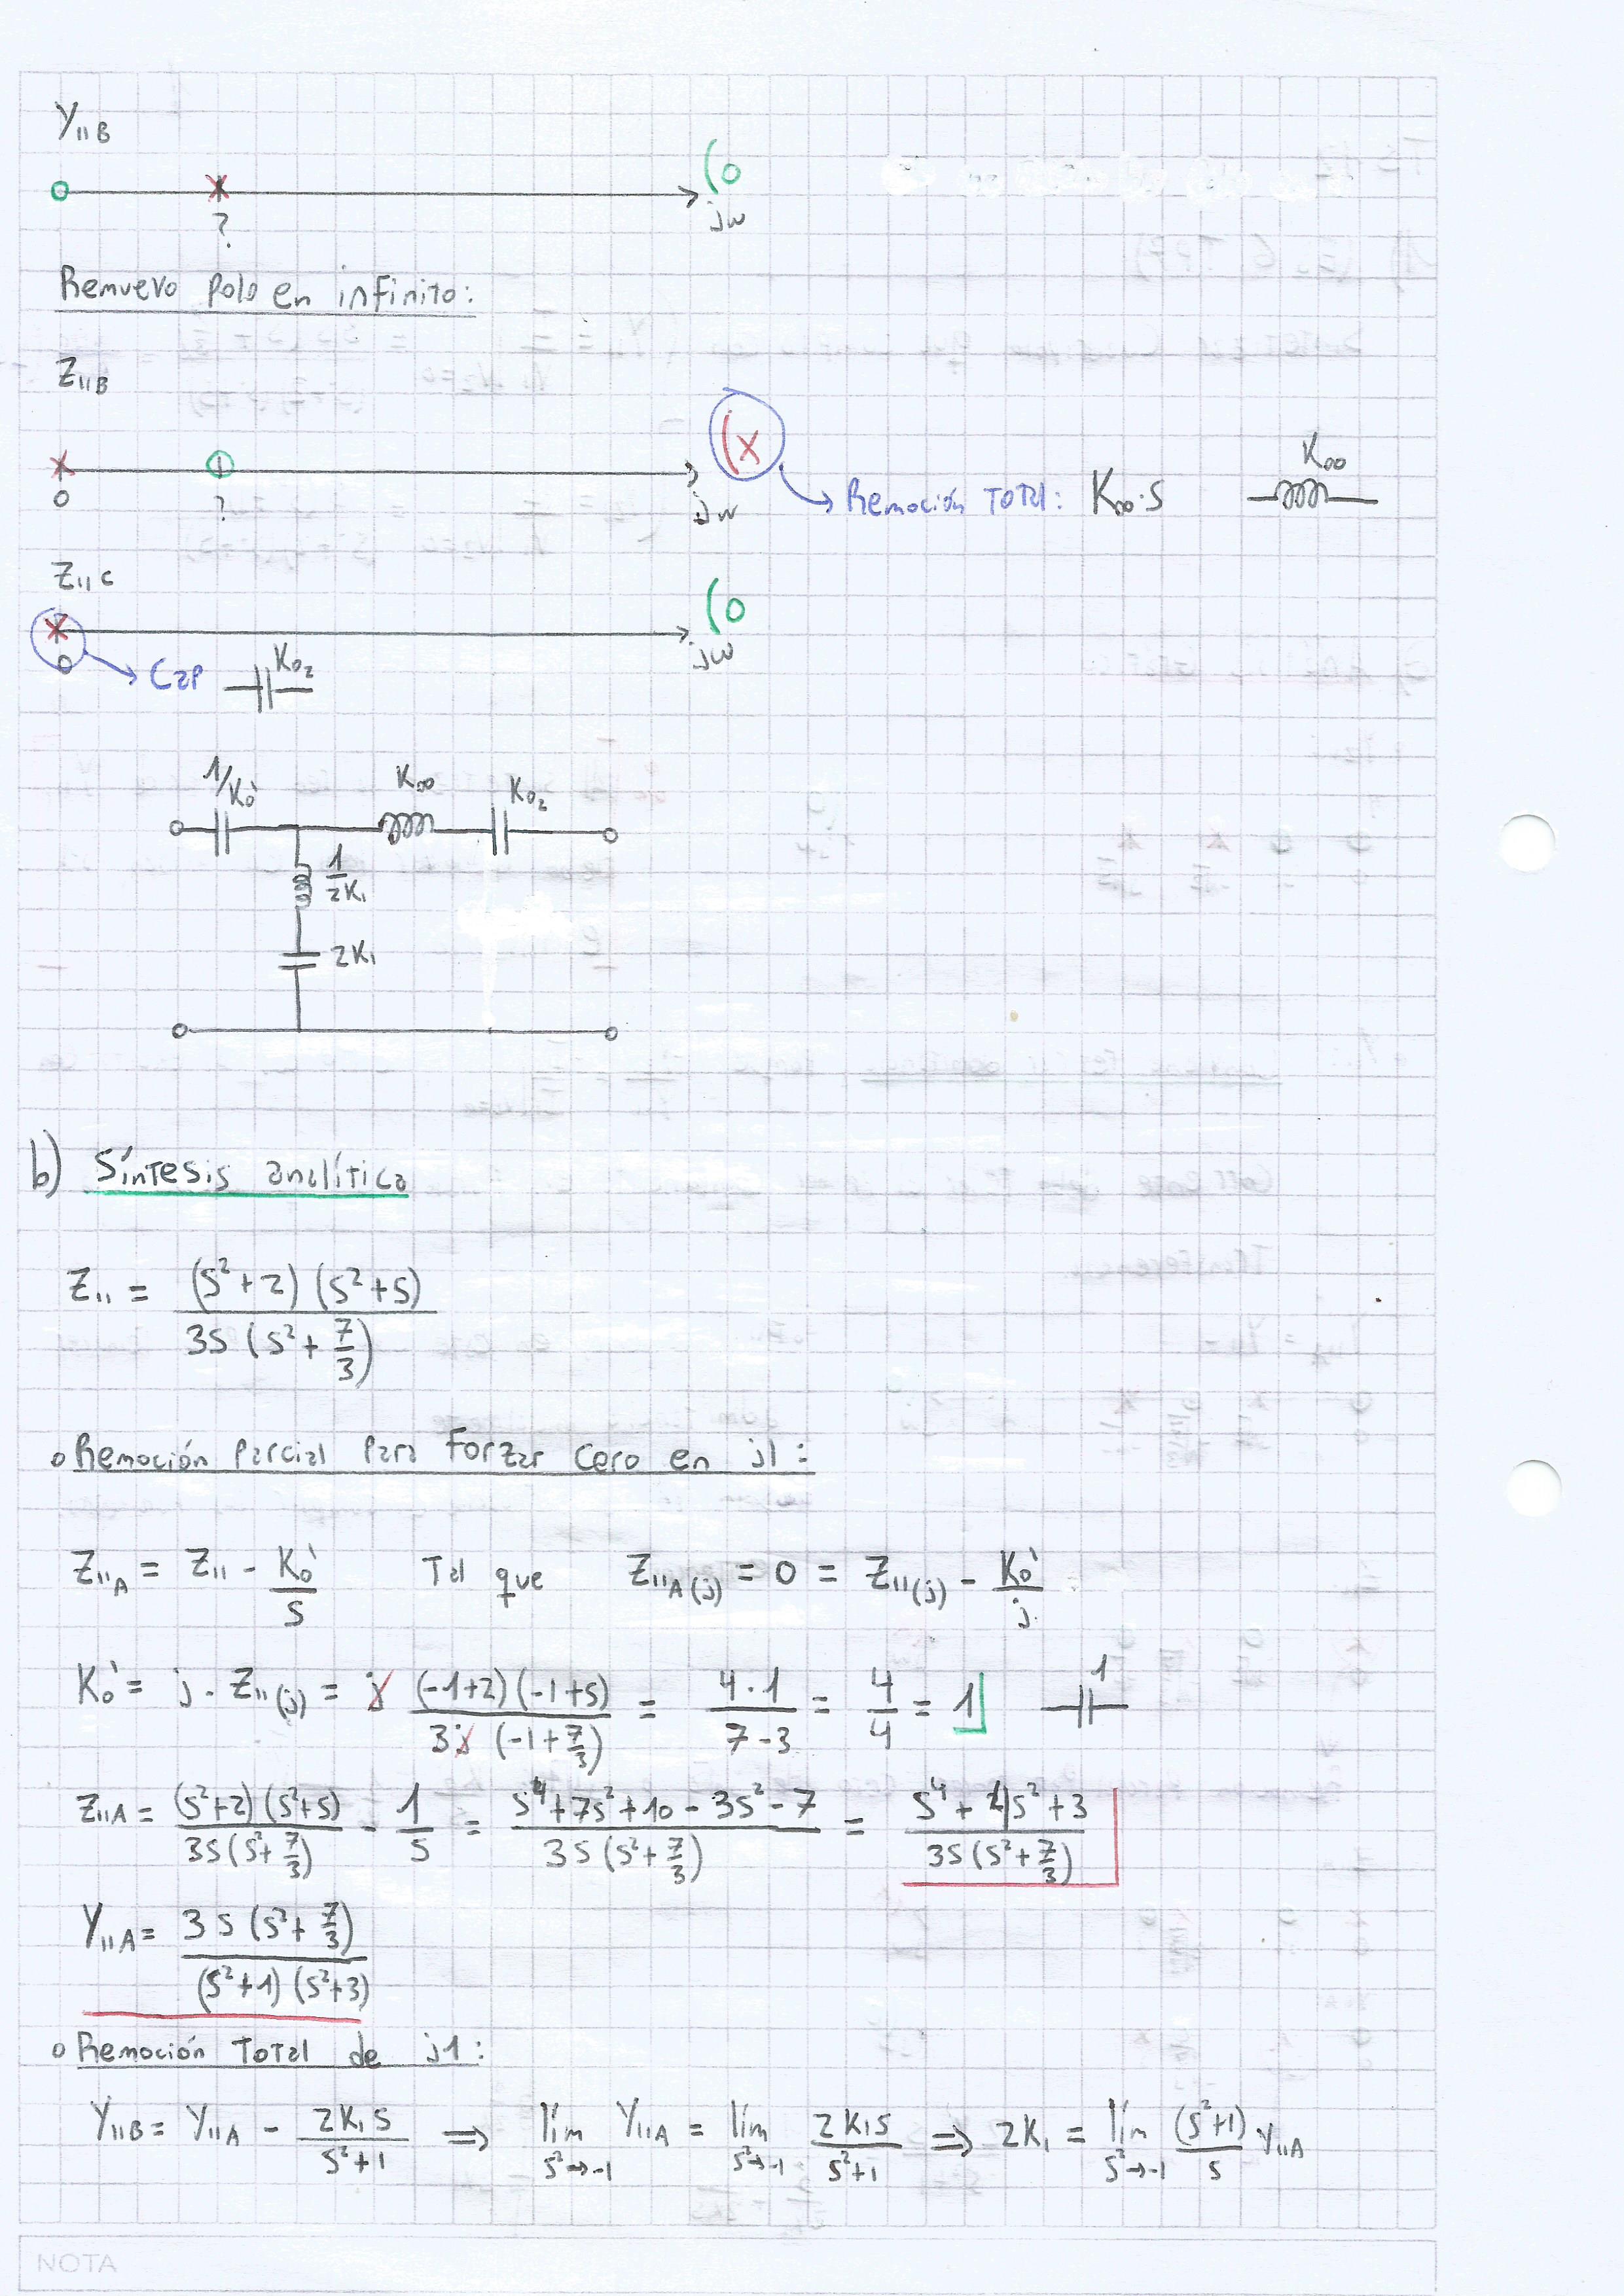 Y₁₁B
?
jω
Remuevo Polo en infinito:
Z₁₁B
0
?
jω
Remoción Total: K∞·S
K∞
Z₁₁C
0
jω
Cap
K₀₂
1/K₀'
K∞
K₀₂
1/2K₁
2K₁
b) Síntesis analítica
Z₁₁ = (S²+2)(S²+5) / 3S(S²+7/3)
o Remoción Parcial Para Forzar Cero en j1:
Z₁₁A = Z₁₁ - K₀'/S Tal que Z₁₁A(j) = 0 = Z₁₁(j) - K₀'/j
K₀' = j · Z₁₁(j) = j (-1+2)(-1+5) / 3j(-1+7/3) = 4·1 / 7-3 = 4/4 = 1
1
Z₁₁A = (S²+2)(S²+5) / 3S(S²+7/3) - 1/S = S⁴+7S²+10-3S²-7 / 3S(S²+7/3) = S⁴+4S²+3 / 3S(S²+7/3)
Y₁₁A = 3S(S²+7/3) / (S²+1)(S²+3)
o Remoción Total de j1:
Y₁₁B = Y₁₁A - 2K₁S / S²+1 ⇒ lím S²→-1 Y₁₁A = lím S²→-1 2K₁S / S²+1 ⇒ 2K₁ = lím S²→-1 (S²+1)/S Y₁₁A
NOTA